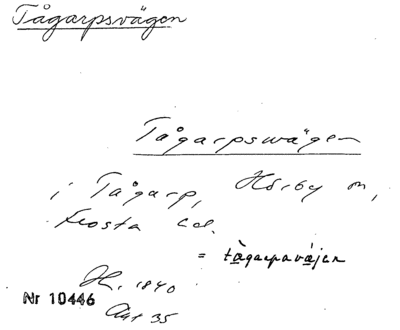 Tågarpsvägen
Tågarpswägen
i Tågarp, Hörby sn,
Frosta hd.
= tågarpsväjen
1840
Nr 10446
Akt 35